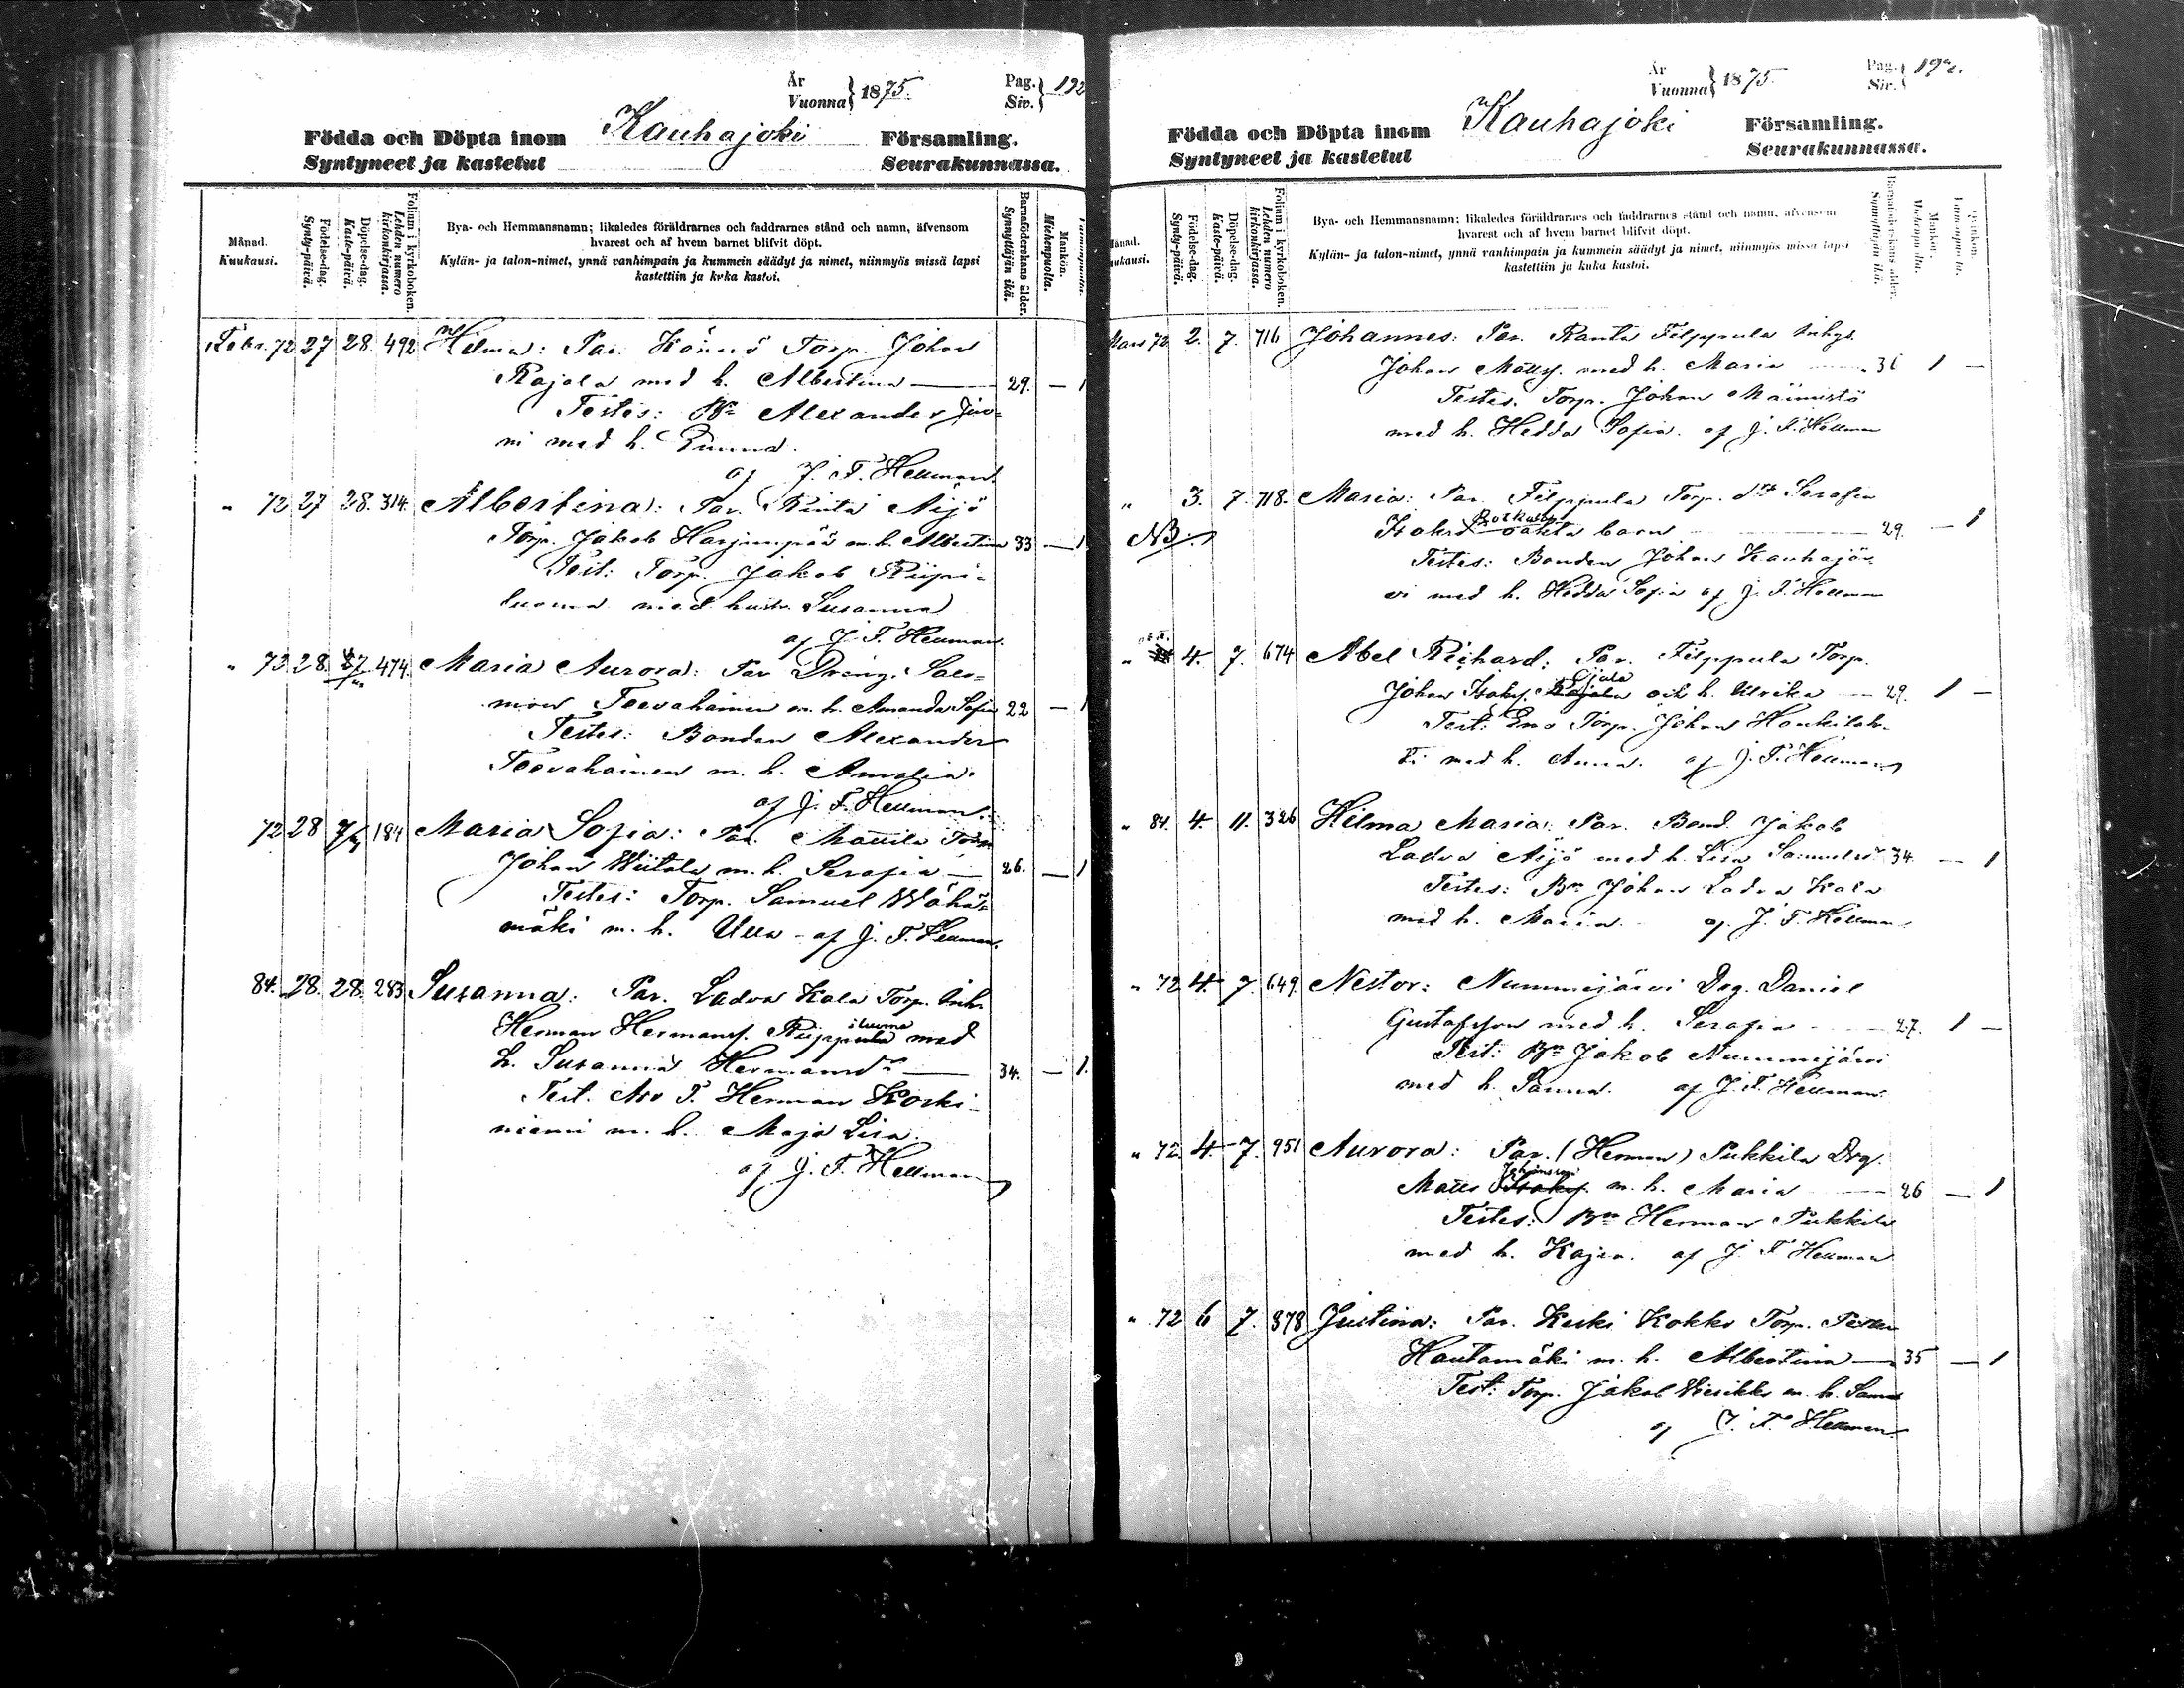 År
Vuonna } 1875.
Pag.
Siv. } 192
Födda och Döpta inom Kauhajoki Församling.
Syntyneet ja kastetut Seurakunnassa.
Månad.
Kuukausi.
Födelse-dag.
Synty-päivä.
Döpelse-dag.
Kaste-päivä.
Folium i kyrkoboken.
Lehden numero kirkonkirjassa.
Bya- och Hemmansnamn; likaledes föräldrarnes och faddrarnes stånd och namn, äfvensom
hvarest och af hvem barnet blifvit döpt.
Kylän- ja talon-nimet, ynnä vanhimpain ja kummein säädyt ja nimet, niinmyös missä lapsi
kastettiin ja kuka kastoi.
Barnaföderskans ålder.
Synnyttäjän ikä.
Mankön.
Miehenpuolia.
Febr. 72 27 28 492 Hilma: Par. Könnö Torp. Johan
Rajala med h. Albertina — 29. — 1
Testes: Bn Alexander Juo-
ni med h.
af J. F. Hellman.
" 72 27 28. 314. Albertina: Par. Rinta Äijö
Torp. Jakob Harjunpää m. h. Albertina 33 — 1
Test: Torp. Jakob Riipi-
luoma med hustr. Susanna
af J. F. Hellman.
" 73 28. 474. Maria Aurora: Par Dreng. Salo-
mon Teevahainen m. h. Amanda Sofia 22 — 1
Testes: Bonden Alexander
Teevahainen m. h. Amalia.
af J. F. Hellman.
72 28 184 Maria Sofia: Par. Mattila Torp
Johan Wiitala m. h. Serafia — 26. — 1
Testes: Torp. Samuel Wähä-
mäki m. h. Ulla - af J. F. Hellman.
84. 28. 28. 283 Susanna: Par. Ladva Kala Torp. Inh.
iluoma
Herman Hermans. Riippula med
h. Susanna Hermansdr — 34. — 1.
Test. Herman Koski-
niemi m. h. Maja Lisa.
af J. F. Hellman
År
Vuonna } 1875.
Pag.
Siv. } 192.
Födda och Döpta inom Kauhajoki Församling.
Syntyneet ja kastetut Seurakunnassa.
Födelse-dag.
Synty-päivä.
Döpelse-dag.
Kaste-päivä.
Folium i kyrkoboken.
Lehden numero kirkonkirjassa.
Bya- och Hemmansnamn; likaledes föräldrarnes och faddrarnes stånd och namn, äfvensom
hvarest och af hvem barnet blifvit döpt.
Kylän- ja talon-nimet, ynnä vanhimpain ja kummein säädyt ja nimet, niinmyös missä lapsi
kastettiin ja kuka kastoi.
Barnaföderskans ålder.
Synnyttäjän ikä.
Mankön.
Miehenpuolia.
Mars 72 2. 7. 716 Johannes: Par. Ranta Filppula Inhys.
Johan Matts. med h. Maria 36 1 —
Testes. Torp. Johan Mäimistö
med h. Hedda Sofia. af J. F. Hellman
" 3. 7. 718. Maria: Par. Filppula Torp. dr Serafia
NB. Isaksd oäkta barn 29. — 1
Testes: Bonden Johan Kauhajär-
vi med h. Hedda Sofia af J. F. Hellman
" 4. 7. 674 Abel Richard: Par. Filppula Torp.
Ojala
Johan Isaks. Rajala och h. Ulrika — 29. 1 —
Test: Torp. Johan Haukilah-
ti med h. Anna. af J. F. Hellman
" 84. 4. 11. 326 Hilma Maria: Par. Bond. Jakob
Ladva Äijö med h. Lisa Samuelsdr 34. — 1
Testes: Bn Johan Ladva Kala
med h. Maria. af J. F. Hellman
" 72 4. 7. 649. Nestor: Nummijärvi Drg. Daniel
Gustafsson med h. Serafia 27. 1 —
Test: Bn Jakob Nummijärvi
med h. Sanna. af J. F. Hellman.
" 72. 4. 7. 951 Aurora: Par. (Herman) Pukkila Drg.
Johansson
Matts Isaks. m. h. Maria — 26 — 1
Testes: Bn Herman Pukkila
med h. Kajsa. af J. F. Hellman
" 72 6 7. 878 Justina: Par. Keski Kokko Torp.
Hautamäki m. h. Albertina — 35 — 1
Test: Torp. Jakob m. h. Sanna
af J. F. Hellman.